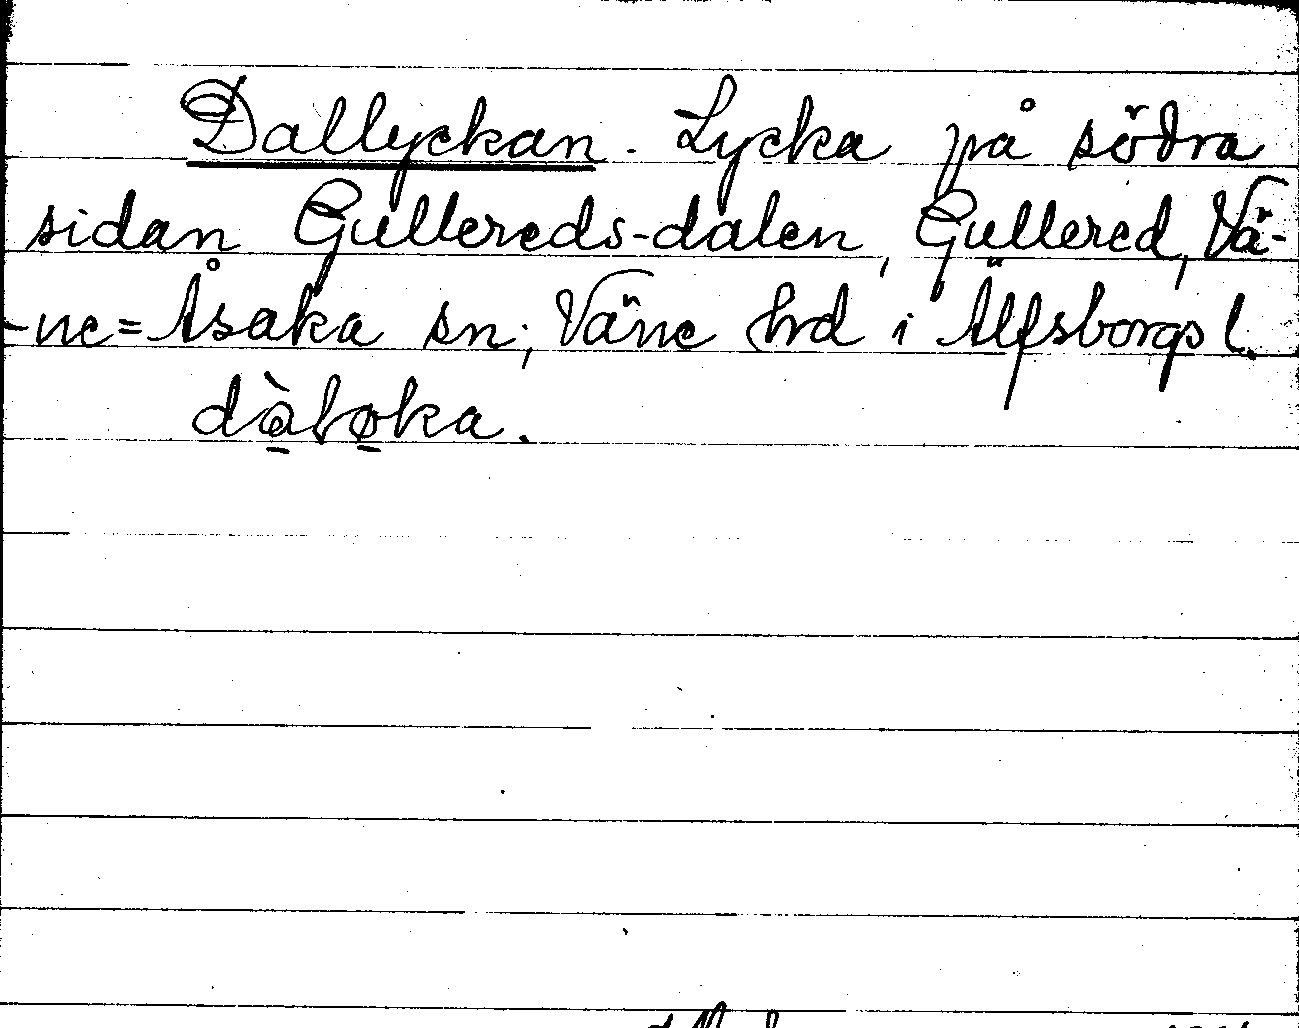 Dallyckan. Lycka på södra
sidan Gullereds-dalen, Gullered, Vä-
-ne=Åsaka sn; Väne hrd i Älfsborgs l.
dàløka.